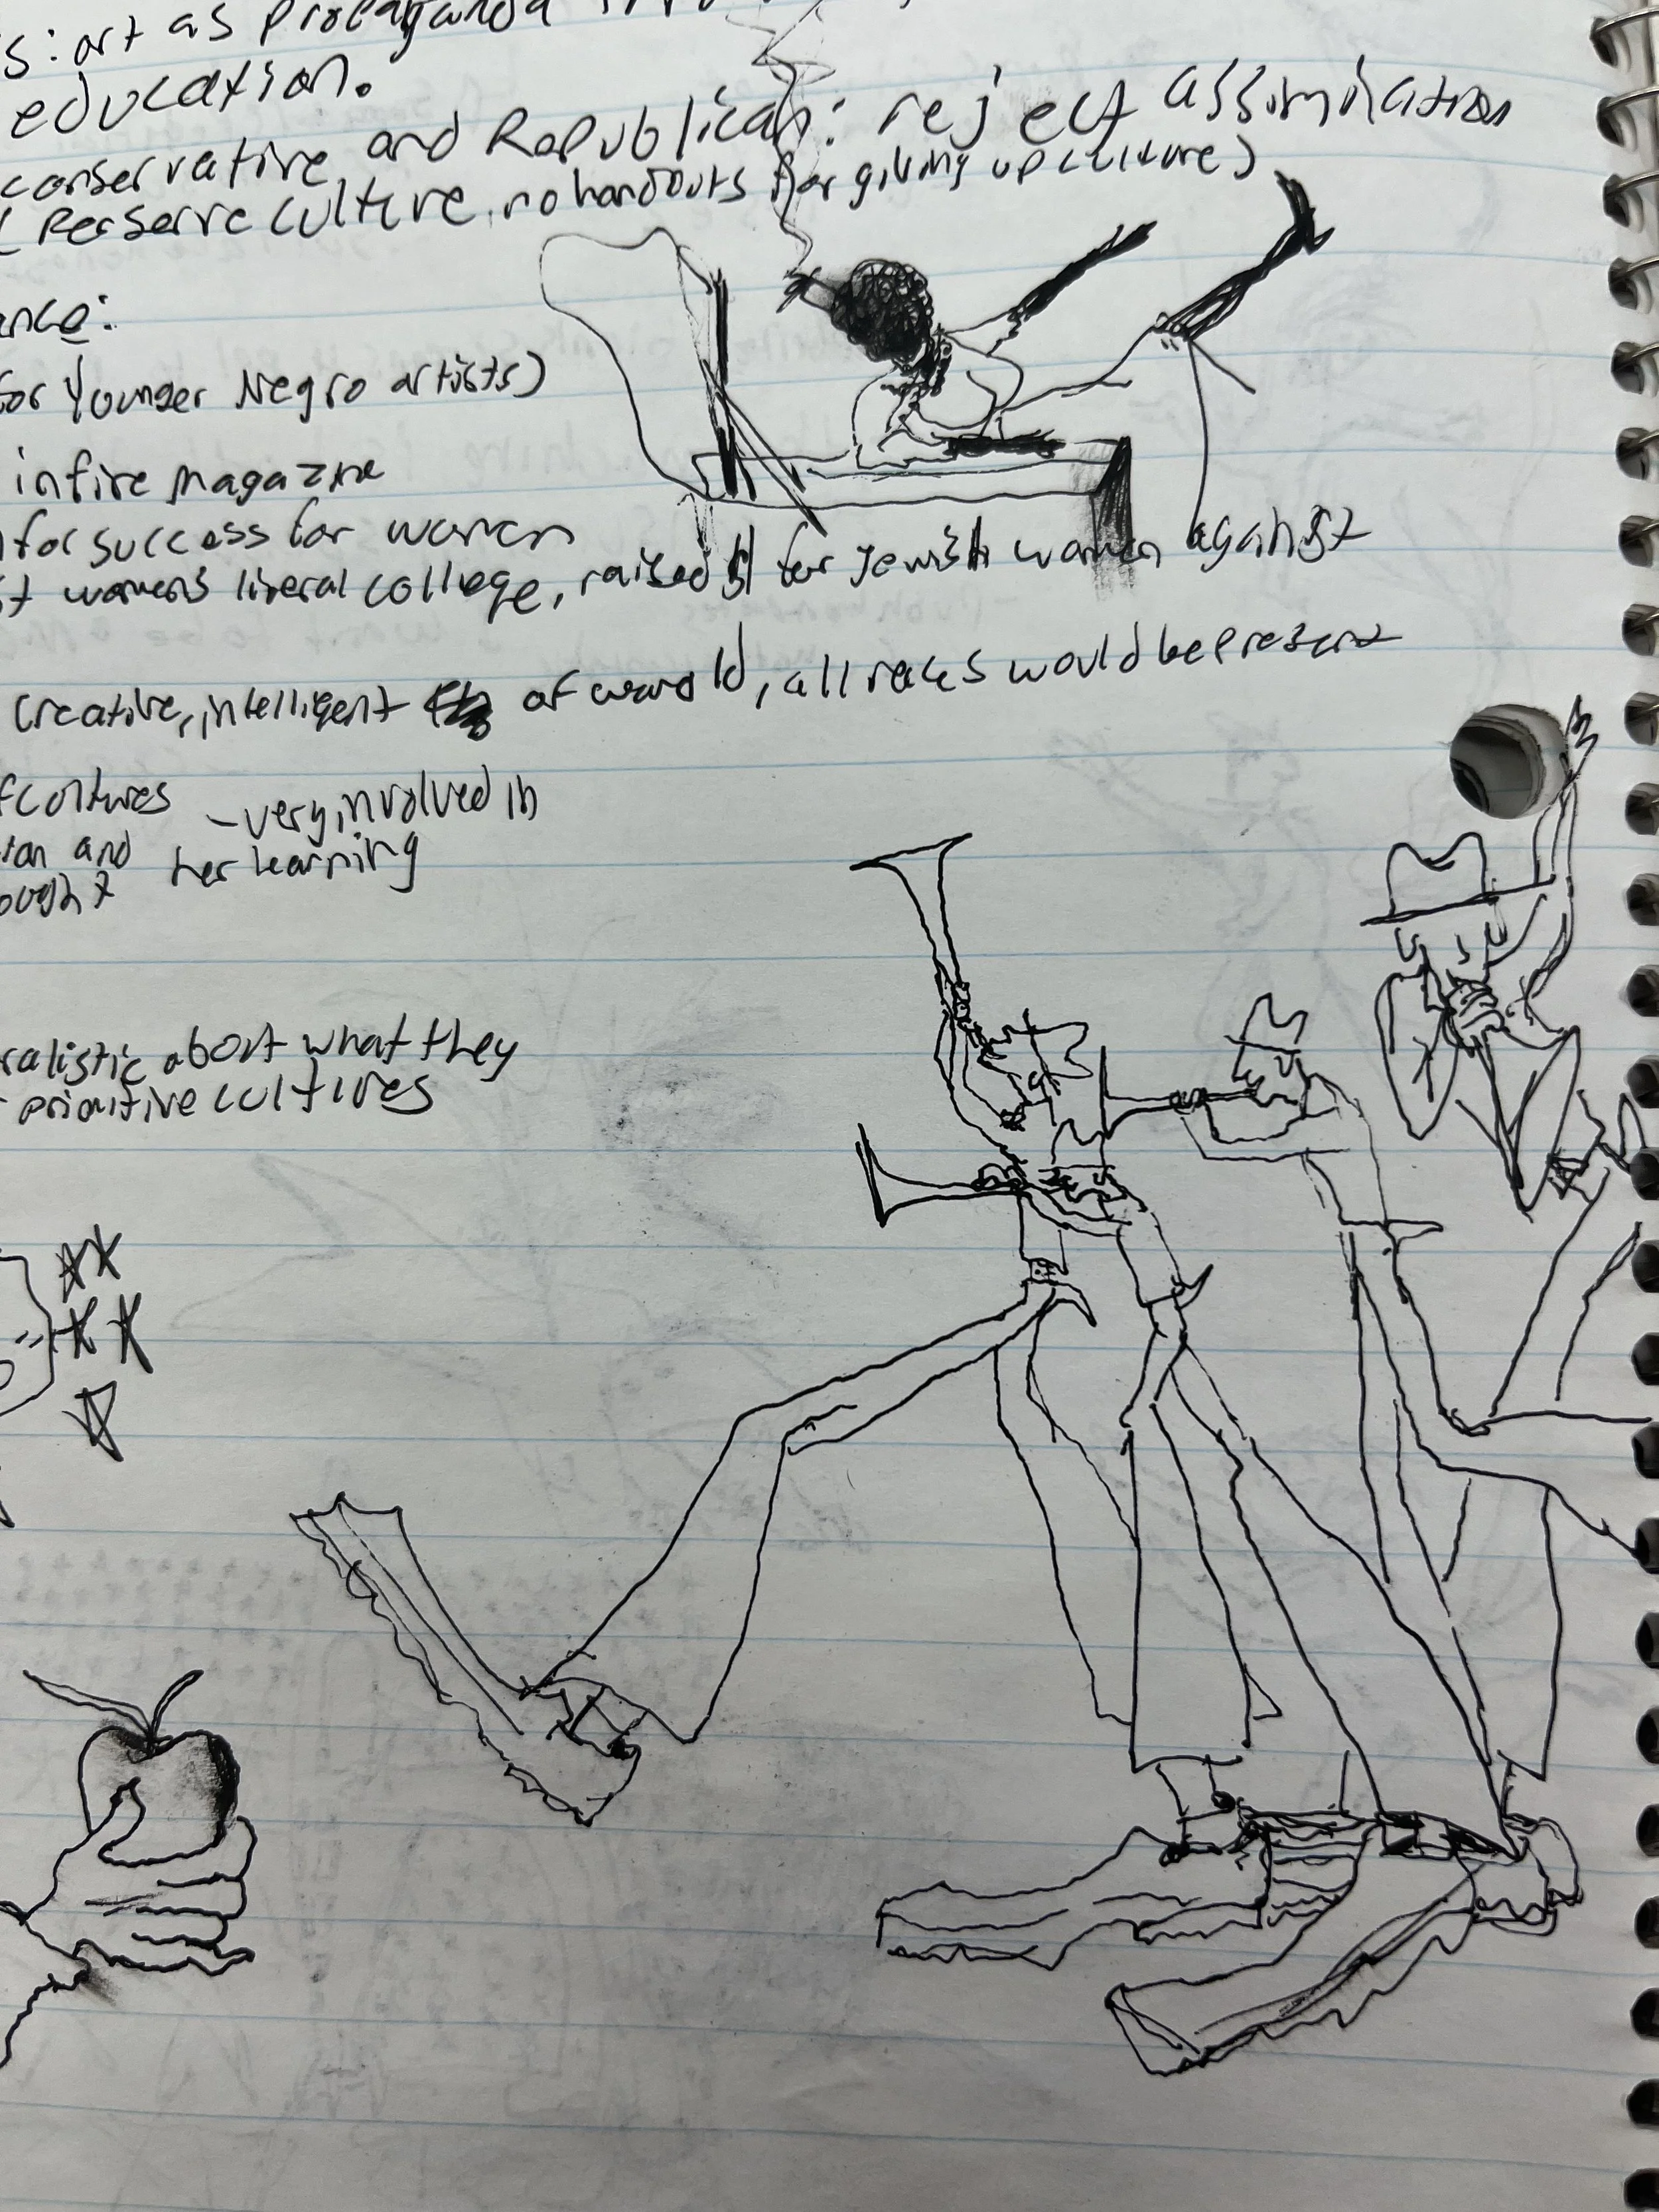 s: art as Propaganda
education.
conservative and Republican: reject assimilation
Perserve culture, no handouts for giving up culture)
ance:
for Younger Negro artists)
in fire magazine
for success for women
st women's liberal college, raised $ for Jewish women against
creative, intelligent of world, all races would be present
of cultures - very involved in
tion and her learning
ought
ralistic about what they
primitive cultures